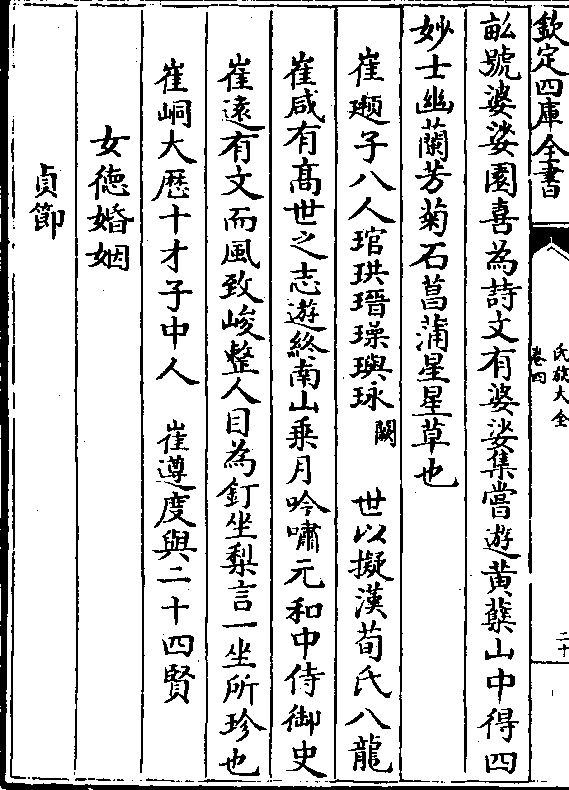 欽定四庫全書
氏族大全
卷四
二十
畝號婆娑園喜為詩文有婆娑集嘗遊黄蘖山中得四
妙士幽蘭芳菊石菖蒲星星草也
崔頲子八人琯珙瑨璪璵球闕世以擬漢荀氏八龍
崔咸有髙世之志遊終南山乗月吟嘯元和中侍御史
崔逺有文而風致峻整人目為釘坐梨言一坐所珍也
崔峒大歴十才子中人　崔遵度與二十四賢
女徳婚姻
貞節